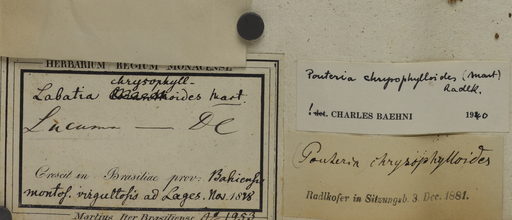 HERBARIUM REGIUM MONACENSE
chrysophyll-
Labatia oides Mart.
Lucuma — DC
Crescit in Brasiliae prov: Bahiensis
montos. virgultosis ad Lages. Nov. 1818
Martius Iter Brasiliense
Pouteria chrysophylloides (Mart)
Radlk.
! det. CHARLES BAEHNI 1940
Pouteria chrysophylloides
Radlkofer in Sitzungsb. 3. Dec. 1881.